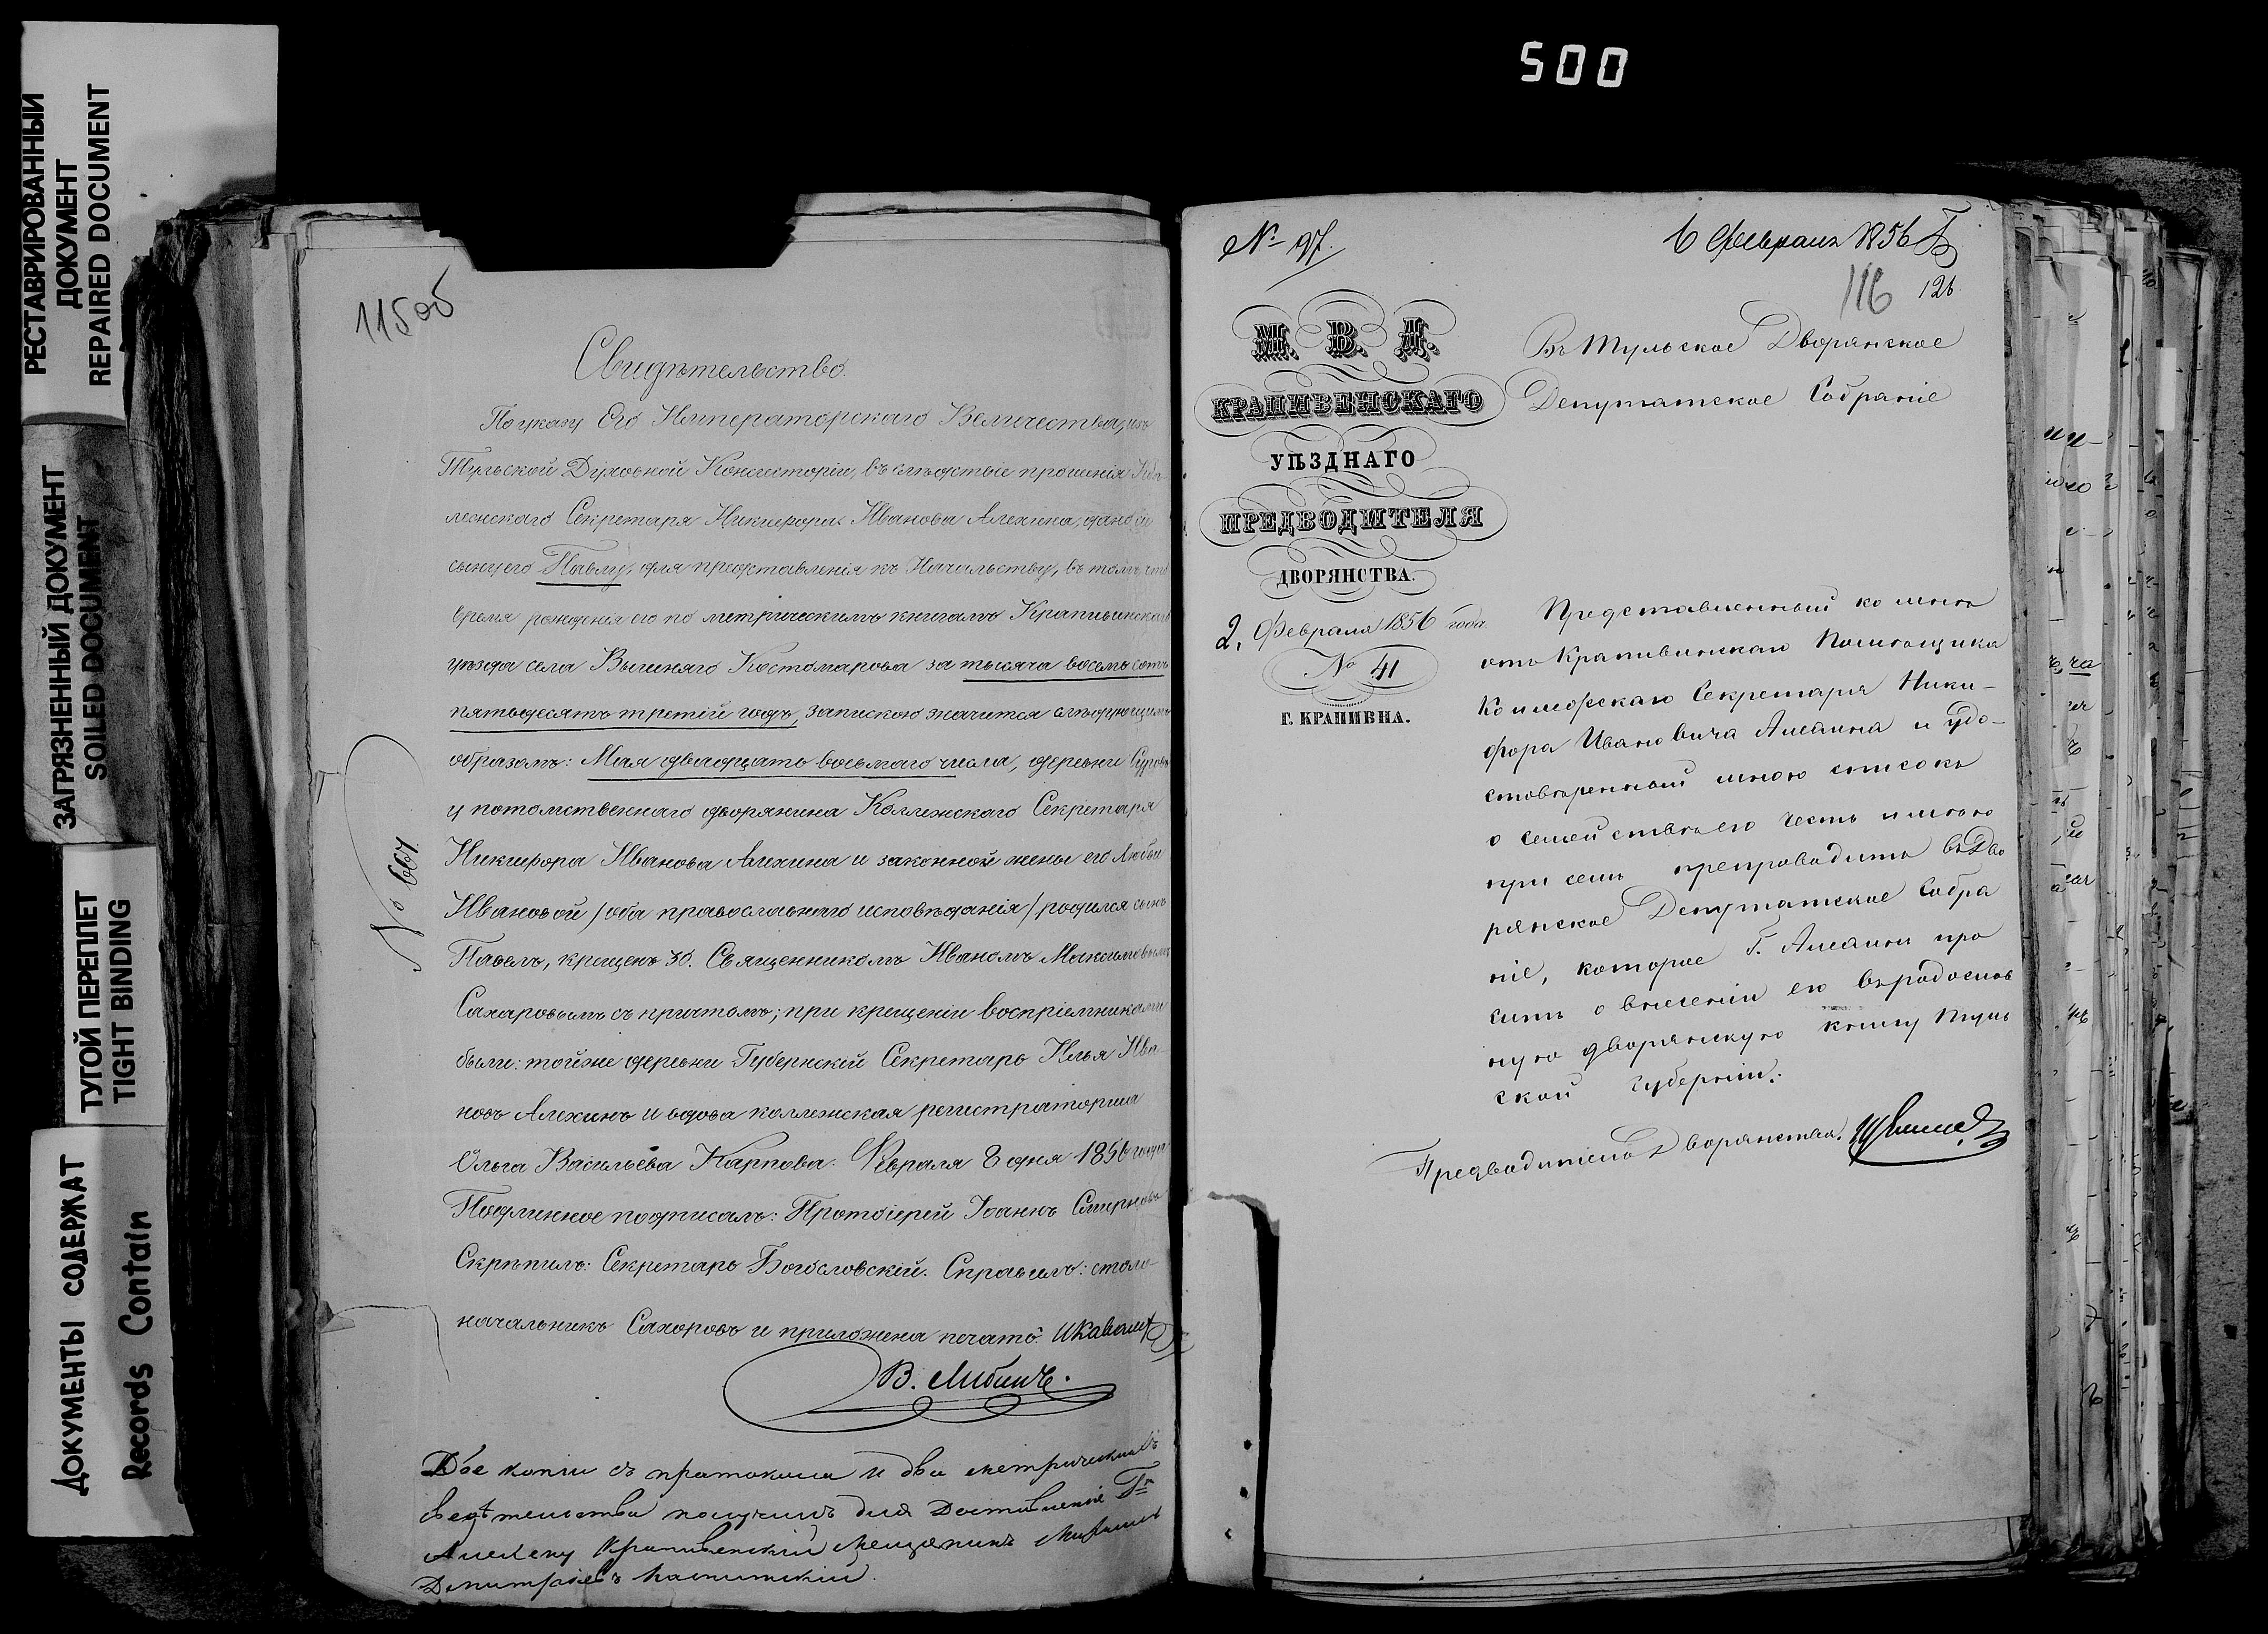 500
РЕСТАВРИРОВАННЫЙ
ДОКУМЕНТ
REPAIRED DOCUMENT
ЗАГРЯЗНЕННЫЙ ДОКУМЕНТ
SOILED DOCUMENT
ТУГОЙ ПЕРЕПЛЕТ
TIGHT BINDING
ДОКУМЕНТЫ СОДЕРЖАТ
Records Contain
115 об
Свидѣтельство.
По указу Его Императорскаго Величества, изъ
Тульской Духовной Консисторіи, въ слѣдствіе прошенія Кол-
лежскаго Секретаря Никифора Иванова Алехина, дано
сыну его Павлу, для представленія къ Начальству, въ томъ, что
время рожденія его по метрическимъ книгамъ Крапивенскаго
уѣзда села Вышняго Костомарова за тысяча восемь сотъ
пятьдесятъ третій годъ, запискою значится слѣдующимъ
образомъ: Мая двадцать восьмаго числа, деревни
у потомственнаго дворянина Коллежскаго Секретаря
Никифора Иванова Алехина и законной жены его Любви
Ивановой /оба православнаго исповѣданія/ родился сынъ
Павелъ, крещенъ 30. Священникомъ Иваномъ Максимовымъ
Сахаровымъ съ причтомъ; при крещеніи воспріемниками
были: тойже деревни Губернскій Секретарь Илья Ива-
новъ Алехинъ и вдова коллежская регистраторша
Ольга Васильева Карпова. Февраля 8 дня 1856 года
Подлинное подписалъ: Протоіерей Іоаннъ Смирновъ
Скрѣпилъ: Секретарь Богословскій. Справилъ: столо-
начальникъ Сахоровъ и приложена печать.
В.
№ 667.
Двѣ копіи съ протокола и два метрическихъ
свидѣтельства получилъ для доставленіе Гну
Алехину Крапивенскій мещанинъ
№ 97.
6 Февраля 1856 г
116
126
М. В. Д.
КРАПИВЕНСКАГО
УѢЗДНАГО
ПРЕДВОДИТЕЛЯ
ДВОРЯНСТВА.
2, Февраля 1856 года
№ 41
Г. КРАПИВНА.
Въ Тульское Дворянское
Депутатское Собраніе
Представленный ко мнѣ
отъ Крапивенскаго Помѣщика
Коллежскаго Секретаря Ники-
фора Ивановича Алехина и удо-
стовѣренный мною списокъ
о семействѣ его честь имѣю
при семъ препроводить въ Дво
рянское Депутатское Собра
ніе, которое Г. Алехинъ про
ситъ о внесеніи его въ родослов
ную дворянскую книгу Туль
ской губерніи.
Предводитель Дворянства